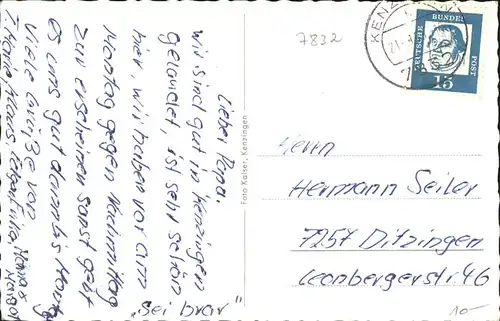 Lieber Papa.
wir sind gut in Kenzingen
gelandet, ist sehr schön
hier, wir haben vor am
Montag gegen Nachmittag
zu erscheinen sonst geht
es uns gut damit bis Montag
Viele Grüße von
"Sei brav"
Foto Kaiser, Kenzingen
7832
KENZ
DEUTSCHE BUNDESPOST
15
Herrn
Hermann Seiler
7257 Ditzingen
Leonbergerstr. 46
10-